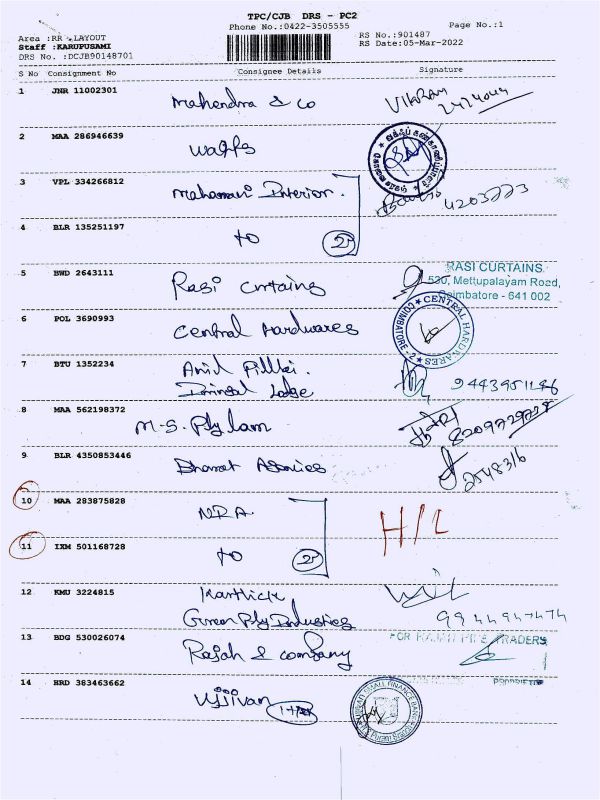 TPC/CJB DRS - PC2
Phone No.:0422-3505555
Page No.:1
Area :RR - LAYOUT
Staff :KARUPUSAMI
DRS No. :DCJB90148701
RS No.:901487
RS Date:05-Mar-2022
S No Consignment No Consignee Details Signature
1 JNR 11002301 Mahendra & co VIKRAM
2 MAA 286946639
3 VPL 334266812 Interior. 4203223
4 BLR 135251197 to
5 BWD 2643111 Rasi Curtains
RASI CURTAINS
530, Mettupalayam Road,
Coimbatore - 641 002
6 POL 3690993 Central Hardwares
CENTRAL HARDWARES COIMBATORE-2
7 BTU 1352234 Anil Pillai.
Lodge
8 MAA 562198372 M-S. Plylam
9 BLR 4350853446 Bharat Agencies 2548316
10 MAA 283875828 NRA.
H/L
11 IXM 501168728 to
12 KMU 3224815 Karthick
Green Ply Industries 9944947474
13 BDG 530026074 Rajah & company
FOR TRADERS
14 HRD 383463662 Ujjivan
SMALL FINANCE BANK